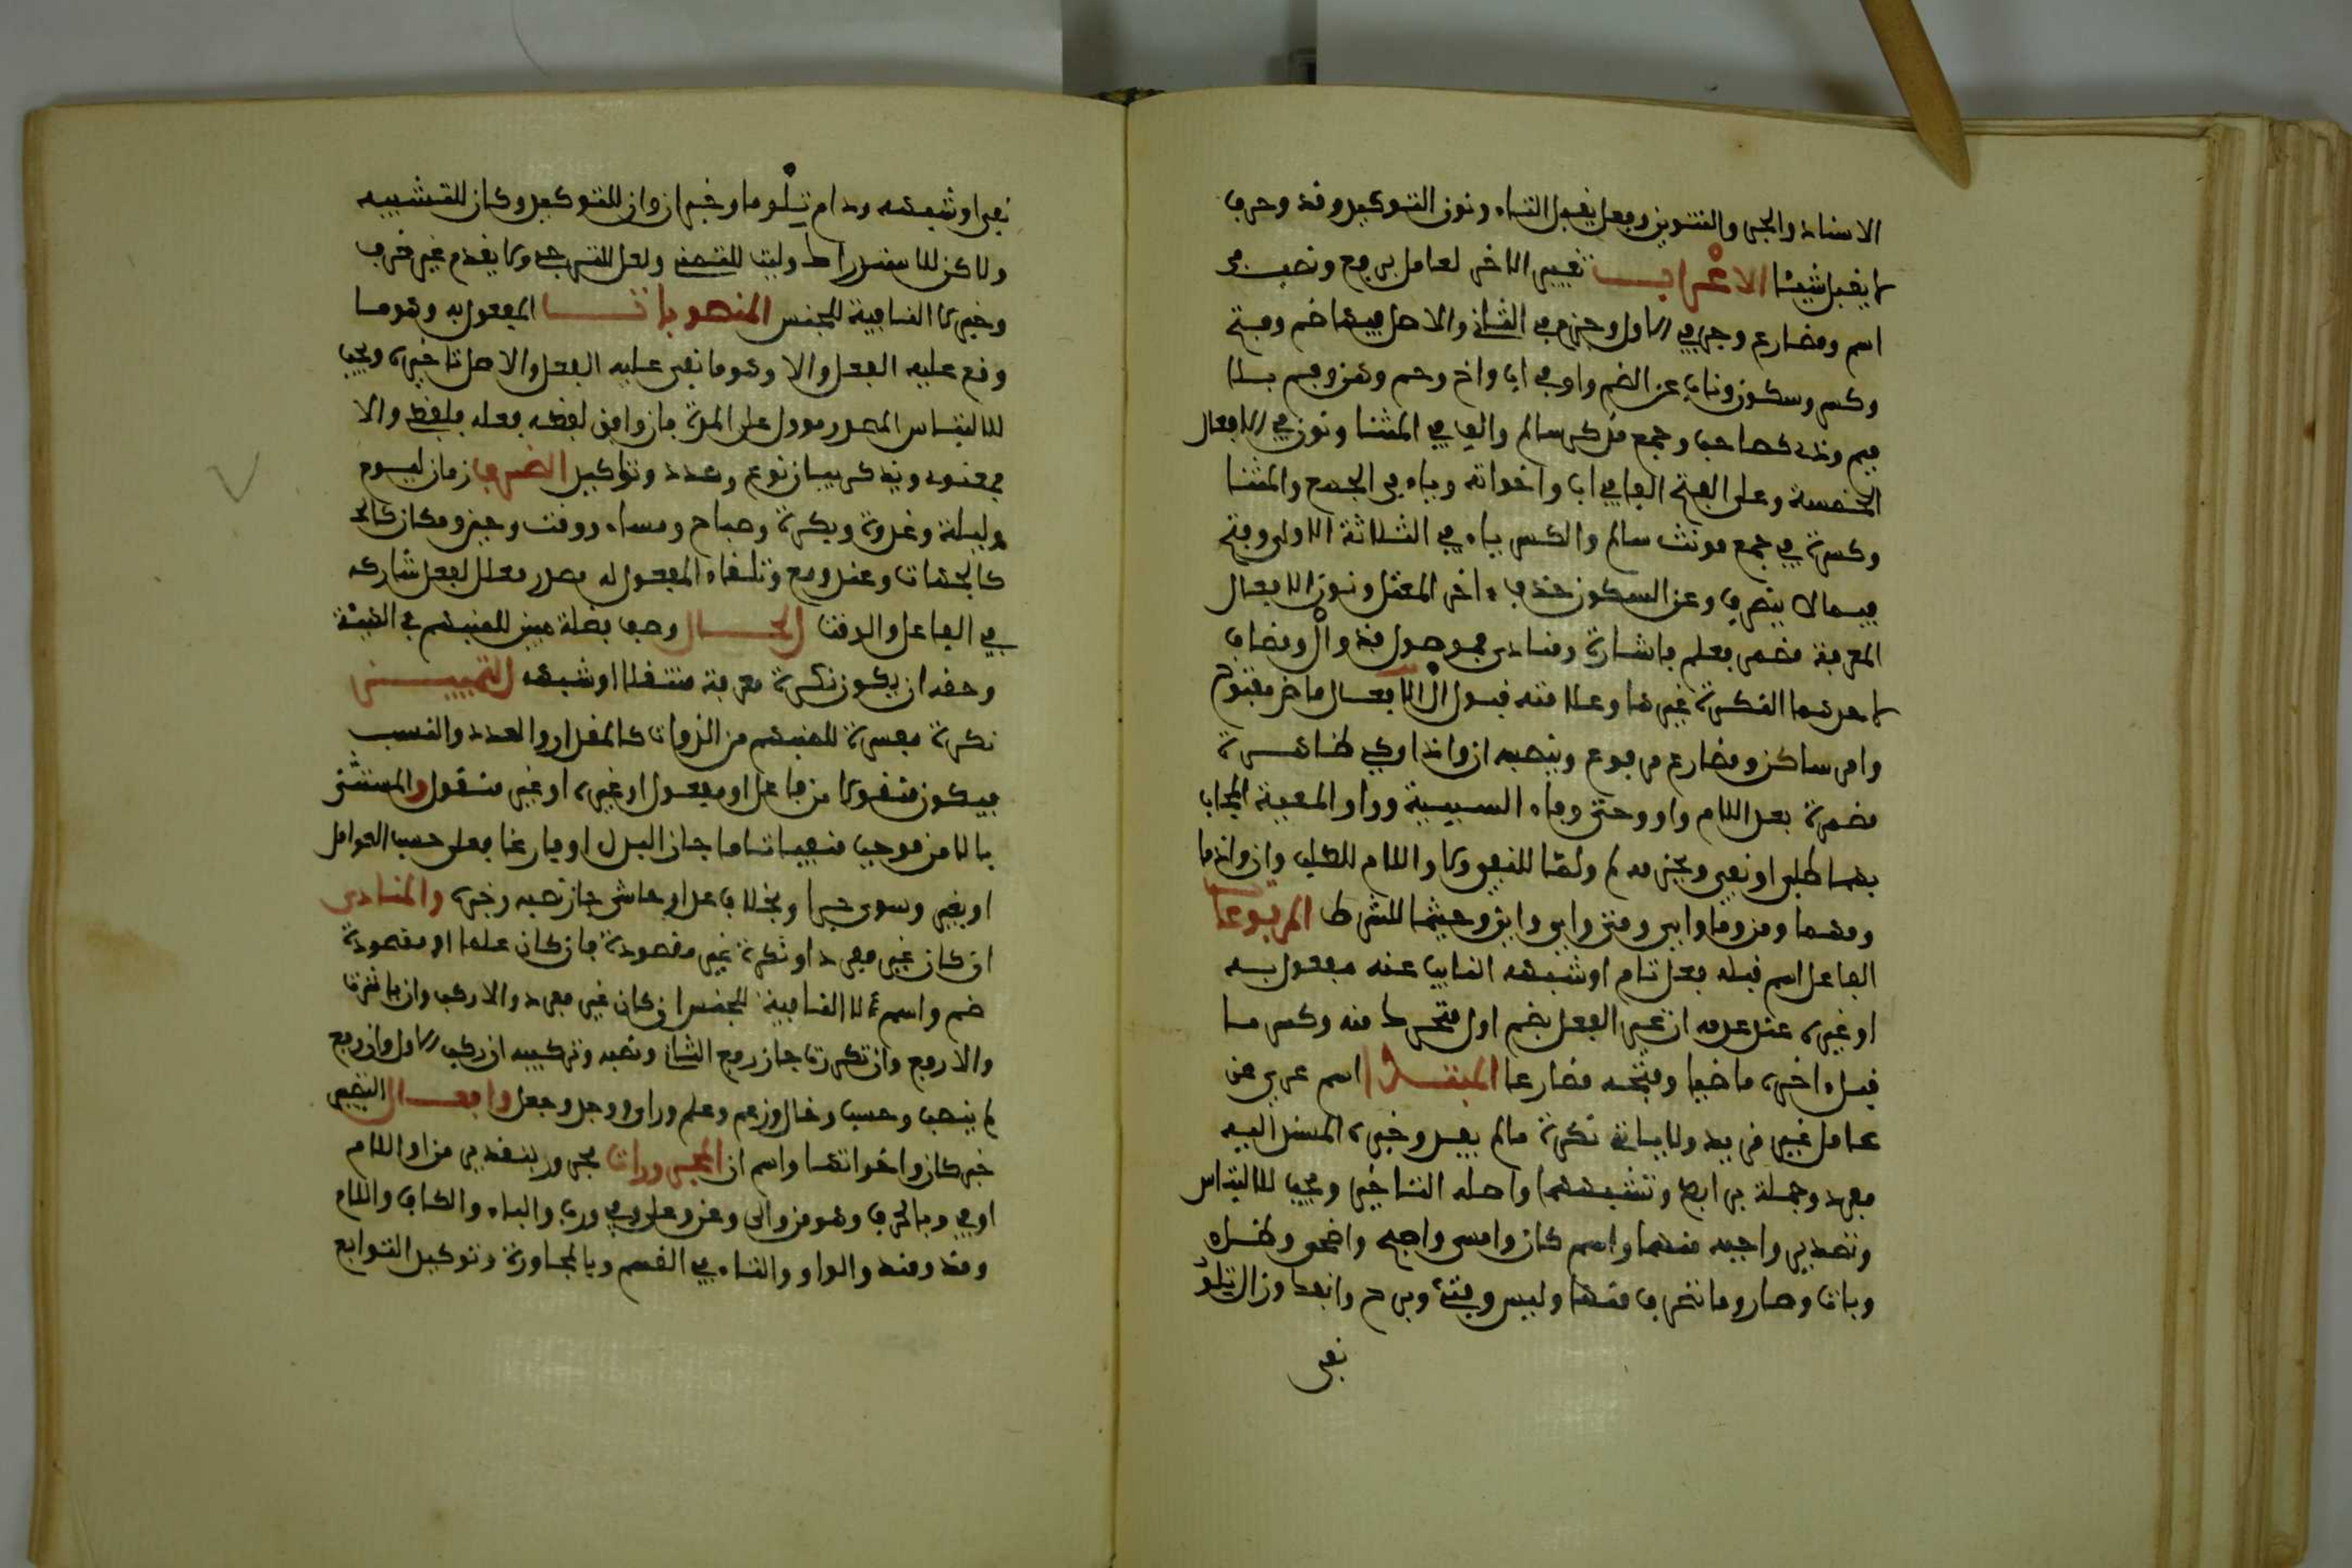 الاسناد والجر والتنوين وفعل يقبل التاء ونون التوكيد وقد وحرف
لا يقبل شيئا الاعراب تغيير الاخر لعامل برفع ونصب في
اسم ومضارع وجر في الاول وجزم في الثاني والاصل فيها ضم وفتح
وكسر وسكون وناب عن الضم واو في اب واخ وحم وهن وفم بلا
ميم وذي كصاحب وجمع مذكر سالم والف في المثنا ونون في الافعال
الخمسة وعلى الفتح الف في اب واخواته وياء في الجمع والمثنا
وكسرة في جمع مونث سالم والكسر ياء في الثلاثة الاولى وفتح
فيما لا ينصرف وعن السكون حذف ءاخر المعتل ونون الافعال
المعرفة مضمر فعلم فاشارة ومنادى فموصول فذو ال ومضاف
لاحدهما النكرة غيرها وعلامته قبول ال الافعال ماض مفتوح
وامر ساكن ومضارع مرفوع وينصبه ان واذا وكي ظاهرة
مضمرة بعد اللام واو وحتى وفاء السببية وواو المعية المجاب
بهما طلب او نفي ويجزمه لم ولما للنفي ولا واللام للطلب وان واذما
ومهما ومن وما واي ومتى واين واين وحيثما للشرط المرفوعات
الفاعل اسم قبله فعل تام او شبهه النايب عنه مفعول به
او غيره عند عدمه ان غير الفعل بضم اول متحرك منه وكسر ما
قبل ءاخره ماضيا وفتحه مضارعا المبتدا اسم عري عن
عامل غير مزيد ولا ياتي نكرة ما لم يفد وخبره المسند اليه
مفرد وجملة برابط وشبهها واصله التاخير ويجب للالتباس
وتصدير واجبه منهما واسم كان وامسى واصبح واضحى وظل
وبات وصار وما تصرف منها وليس وفتئ وبرح وانفك وزال تلو
نفي
نفي او شبهه ودام تلو ما وخبر ان وان للتوكيد وكان للتشبيه
ولاكن للاستدراك وليت للتمني ولعل للترجي ولا يقدم غير ظرف
وخبر لا النافية للجنس المنصوبات المفعول به وهو ما
وقع عليه الفعل والاصل تاخيره ويجب
للالتباس المصدر ما دل على المرة فان وافق لفظه فعله فلفظي والا
فمعنوي ويذكر لبيان نوع وعدد وتوكيد الظرف زمان ليوم
وليلة وغدوة وبكرة وصباح ومساء ووقت وحين ومكان
كالجهات وعند ومع وتلقاء المفعول له مصدر معلل لفعل شاركه
في الفاعل والوقت الحال وصف فضلة مبين للمنبهم من الهيئة
وحقه ان يكون نكرة من معرفة منتقلا او شبهه التمييز
نكرة مفسرة للمنبهم من الذوات كالمقدار والعدد والنسب
فيكون منقولا من فاعل او مفعول او غيره او غير منقول والمستثنى
بالا من موجب فان جاز البدل او فارغا فعلى حسب العوامل
او بغير وسوى جرا وبخلا وعدا وحاشى جاز نصبه وجره والمنادى
ان كان غير مفرد او نكرة غير مقصودة فان كان علما او مقصودة
ضم واسم لا النافية للجنس ان كان غير مفرد والا ركب وان باشرت
والا رفع وان تكررت جاز رفع الثاني ونصبه وتركيبه ان ركب الاول وان رفع
لم ينصب وحسب وخال وزعم وعلم ورءا ووجد وجعل وافعال التصيير
خبر كان واخواتها واسم ان المجرورات مجرور بتقدير من او اللام
او في وبالحرف وهو من والى وعن وعلى وفي ورب والباء والكاف واللام
ومذ ومنذ والواو والتاء في القسم وبالمجاورة وتوكيد التوابع